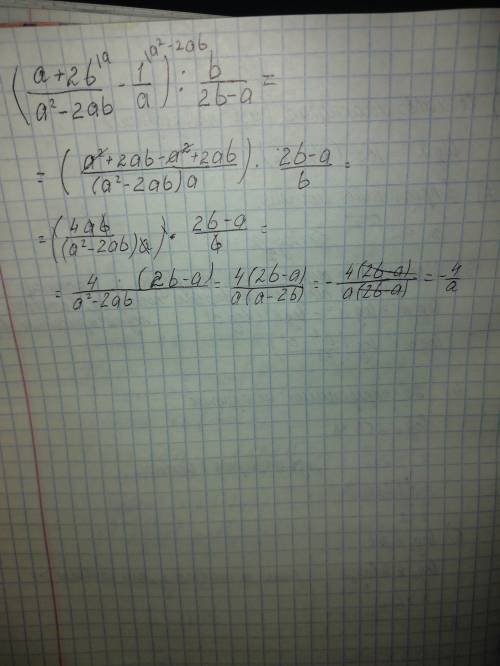 ( (a+2b)/(a²-2ab) ^(a - 1/a ^(a²-2ab ) : b/(2b-a) =
= ( (a²+2ab-a²+2ab)/((a²-2ab)a) ) · (2b-a)/b =
= ( 4ab/((a²-2ab)a) ) · (2b-a)/b =
= 4/(a²-2ab) · (2b-a) = 4(2b-a)/(a(a-2b)) = - 4(2b-a)/(a(2b-a)) = - 4/a